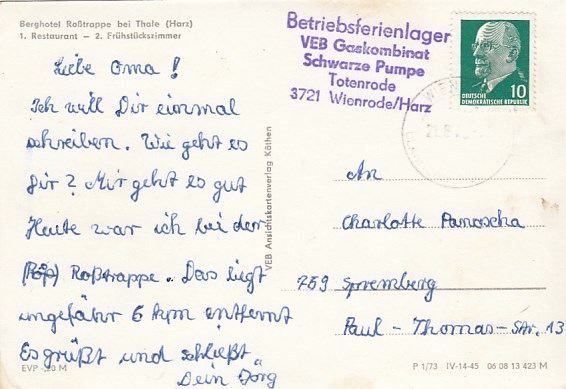 Berghotel Roßtrappe bei Thale (Harz)
1. Restaurant – 2. Frühstückszimmer
Liebe Oma!
Ich will Dir einmal
schreiben. Wie geht es
Dir? Mir geht es gut
Heute war ich bei der
Roßtrappe. Das liegt
ungefähr 6 km entfernt
Es grüßt und schließt
Dein Jörg
EVP -,20 M
VEB Ansichtskartenverlag Köthen
Betriebsferienlager
VEB Gaskombinat
Schwarze Pumpe
Totenrode
3721 Wienrode/Harz
10
DEUTSCHE
DEMOKRATISCHE REPUBLIK
An
Charlotte Panoscha
759 Spremberg
Paul-Thomas-Str. 13
P 1/73 IV-14-45 06 08 13 423 M